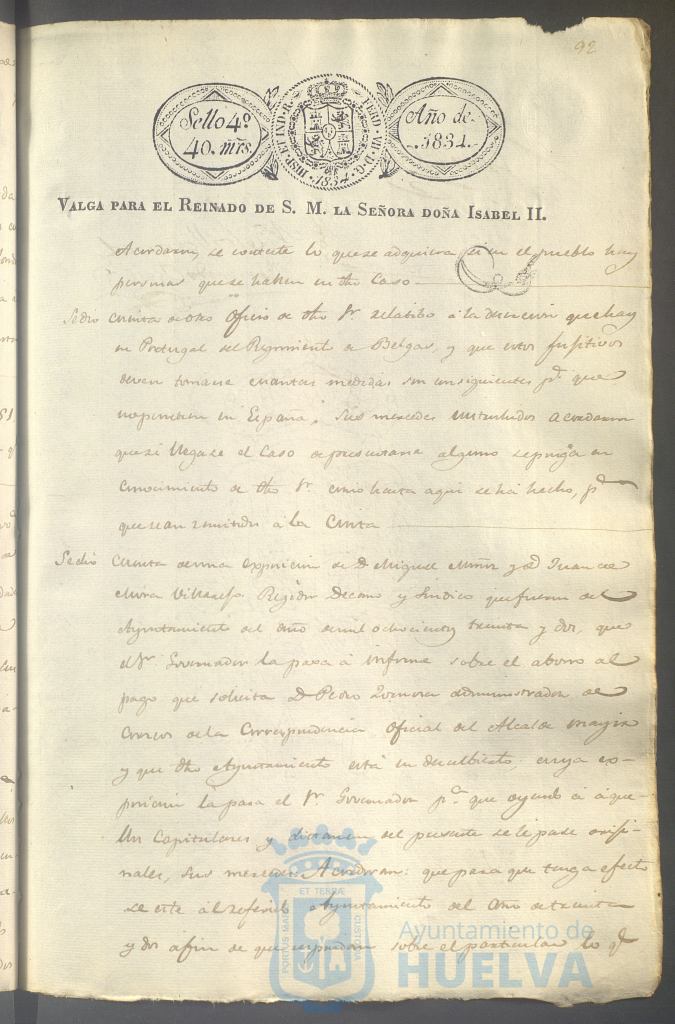 92
Sello 4º
40. mrs.
HISP. ET IND. R. FERD. VII. D. G.
1834
Año de
1834.
VALGA PARA EL REINADO DE S. M. LA SEÑORA DOÑA ISABEL II.
Acordaron se conteste lo que se adquiera si en el pueblo hay
personas que se hallen en dho Caso
Se dio cuenta de otro Oficio de dho Sr. relatibo a la desercion que hay
en Portugal del Regimiento de Belgas, y que estos fugitivos
deven tomarse cuantas medidas son consiguientes pª que
no penetren en España; sus mercedes enterados acordaron
que si llegase el Caso de presentarse alguno se ponga en
conocimiento de dho Sr. como hasta aqui se ha hecho, pª
que sean remitidos a la
Se dio cuenta de una exposicion de D. Miguel y D. Juan de
Mora Regidor Decano y Sindico que fueron del
Ayuntamiento del año de mil ochocientos treinta y dos, que
el Sr. Governador la pasa a informe sobre el abono al
pago que solicita D. Pedro administrador de
Correos de la Correspondencia Oficial del Alcalde mayor
y que dho Ayuntamiento está en descubierto, cuya ex-
posicion la pasa el Sr. Governador pª que oyendo a aque-
llos Capitulares y dictamen del presente se le pase origi-
nales, sus mercedes Acordaron: que para que tenga efecto
se cite al referido Ayuntamiento del año de treinta
y dos a fin de que respondan sobre el particular lo qe
PORTUS MARIS ET TERRAE CUSTODIA
Ayuntamiento de
HUELVA